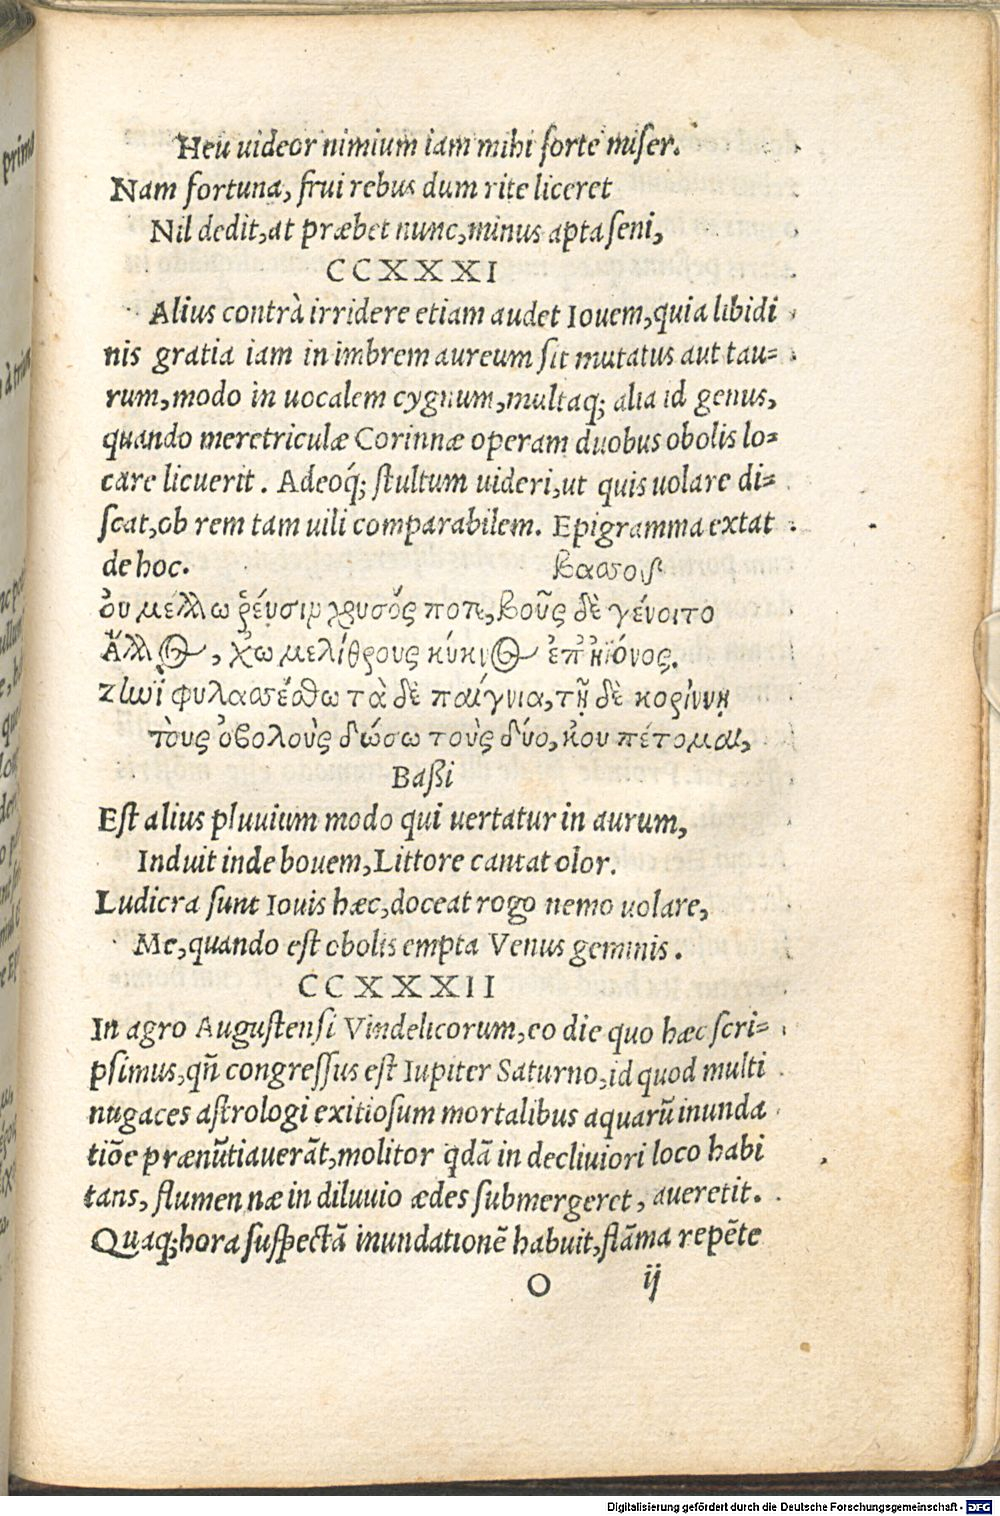 Heu uideor nimium iam mihi forte miser.
Nam fortuna, frui rebus dum rite liceret
Nil dedit, at præbet nunc, minus apta seni,
CCXXXI
Alius contrà irridere etiam audet Iouem, quia libidi
nis gratia iam in imbrem aureum sit mutatus aut tau-
rum, modo in uocalem cygnum, multaq; alia id genus,
quando meretriculæ Corinnæ operam duobus obolis lo-
care licuerit. Adeoq́; stultum uideri, ut quis uolare di-
scat, ob rem tam uili comparabilem. Epigramma extat
de hoc. βασσοις
ὀυ μέλλω ῥέυσιν χρυσός ποτε, βοῦς δὲ γένοιτο
Ἄλλος, χ᾽ω μελίθρους κύκνος ἐπ᾽ἠϊόνος.
Ζίωϊ φυλασσέσθω τὰ δὲ παίγνια, τῇ δὲ κορίννῃ
τὸυς ὀβολοὺς δώσω τοὺς δύο, κ᾽ου πέτομαι,
Baßi
Est alius pluuium modo qui uertatur in aurum,
Induit inde bouem, Littore cantat olor.
Ludicra sunt Iouis hæc, doceat rogo nemo uolare,
Me, quando est obolis empta Venus geminis.
CCXXXII
In agro Augustensi Vindelicorum, eo die quo hæc scri-
psimus, qñ congressus est Iupiter Saturno, id quod multi
nugaces astrologi exitiosum mortalibus aquarũ inunda
tiõe prænũtiauerãt, molitor qdã in decliuiori loco habi
tans, flumen næ in diluuio ædes submergeret, aueretit.
Quaq; hora suspectã inundationẽ habuit, flãma repẽte
O ij
prima
Digitalisierung gefördert durch die Deutsche Forschungsgemeinschaft - DFG